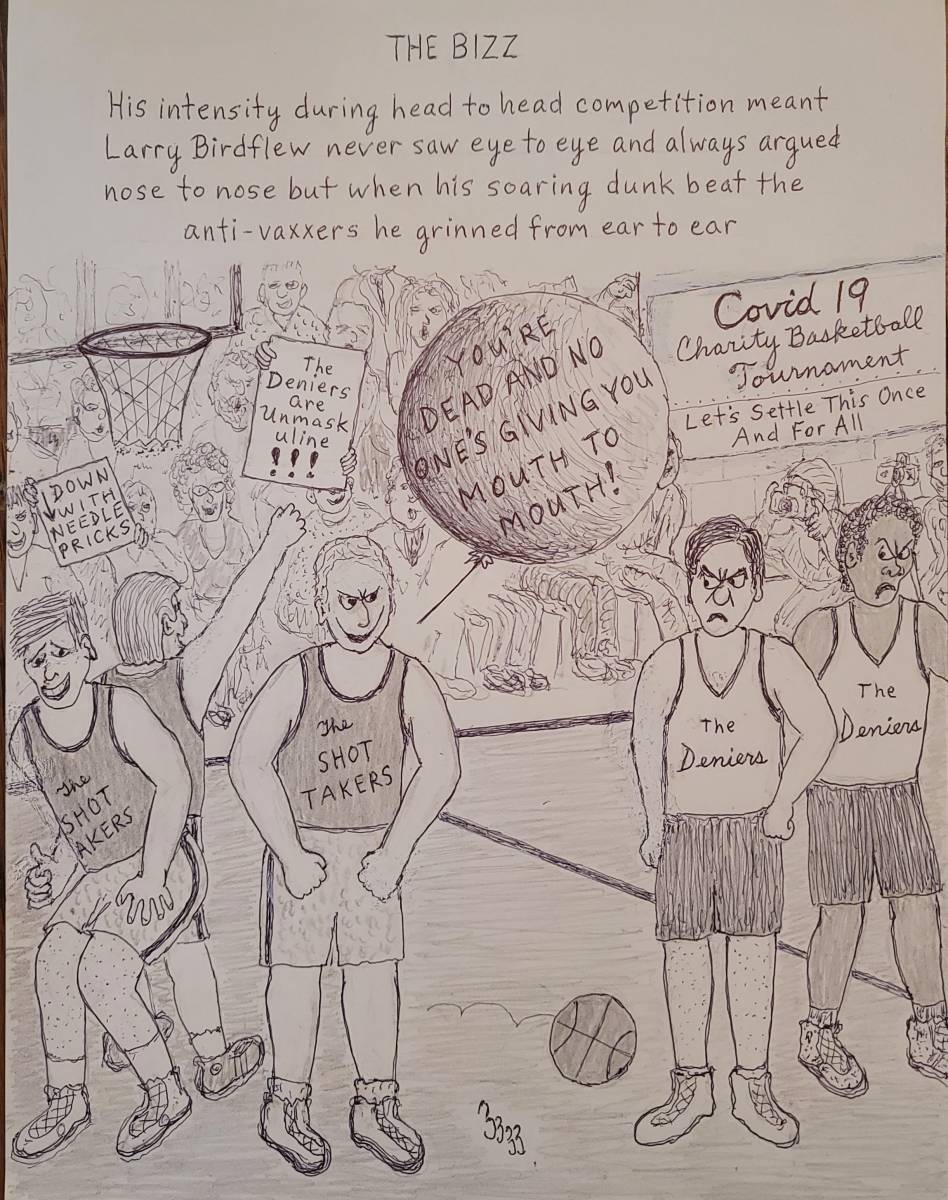 THE BIZZ
His intensity during head to head competition meant
Larry Birdflew never saw eye to eye and always argued
nose to nose but when his soaring dunk beat the
anti-vaxxers he grinned from ear to ear
Covid 19
Charity Basketball
Tournament
Let's Settle This Once
And For All
The
Deniers
are
Unmask
uline
!!!
YOU'RE
DEAD AND NO
ONE'S GIVING YOU
MOUTH TO
MOUTH!
DOWN
WITH
NEEDLE
PRICKS
The
SHOT
AKERS
The
SHOT
TAKERS
The
Deniers
The
Deniers